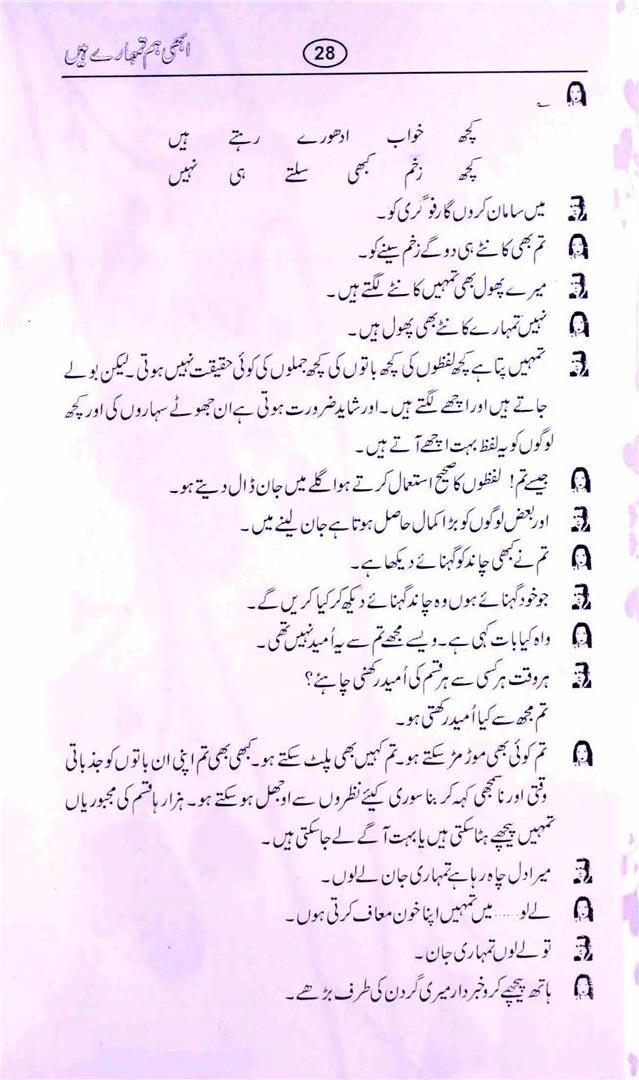 ابھی ہم تمہارے ہیں
28
؎
کچھ خواب ادھورے رہتے ہیں
کچھ زخم کبھی سلتے ہی نہیں
میں سامان کروں گا رفو گری کو۔
تم بھی کانٹے ہی دو گے زخم سینے کو۔
میرے پھول بھی تمہیں کانٹے لگتے ہیں۔
نہیں تمہارے کانٹے بھی پھول ہیں۔
تمہیں پتا ہے کچھ لفظوں کی کچھ باتوں کی کچھ جملوں کی کوئی حقیقت نہیں ہوتی۔ لیکن بولے
جاتے ہیں اور اچھے لگتے ہیں۔ اور شاید ضرورت ہوتی ہے ان جھوٹے سہاروں کی اور کچھ
لوگوں کو یہ لفظ بہت اچھے آتے ہیں۔
جیسے تم! لفظوں کا صحیح استعمال کرتے ہو اگلے میں جان ڈال دیتے ہو۔
اور بعض لوگوں کو بڑا کمال حاصل ہوتا ہے جان لینے میں۔
تم نے کبھی چاند کو گہنائے دیکھا ہے۔
جو خود گہنائے ہوں وہ چاند گہنائے دیکھ کر کیا کریں گے۔
واہ کیا بات کہی ہے۔ ویسے مجھے تم سے یہ اُمید نہیں تھی۔
ہر وقت ہر کسی سے ہر قسم کی اُمید رکھنی چاہئے؟
تم مجھ سے کیا اُمید رکھتی ہو۔
تم کوئی بھی موڑ مڑ سکتے ہو۔ تم کہیں بھی پلٹ سکتے ہو۔ کبھی بھی تم اپنی ان باتوں کو جذباتی
وقتی اور ناسمجھی کہہ کر بنا سوری کیئے نظروں سے اوجھل ہو سکتے ہو۔ ہزار ہا قسم کی مجبوریاں
تمہیں پیچھے ہٹا سکتی ہیں یا بہت آگے لے جا سکتی ہیں۔
میرا دل چاہ رہا ہے تمہاری جان لے لوں۔
لے لو...... میں تمہیں اپنا خون معاف کرتی ہوں۔
تو لے لوں تمہاری جان۔
ہاتھ پیچھے کرو خبردار میری گردن کی طرف بڑھے۔